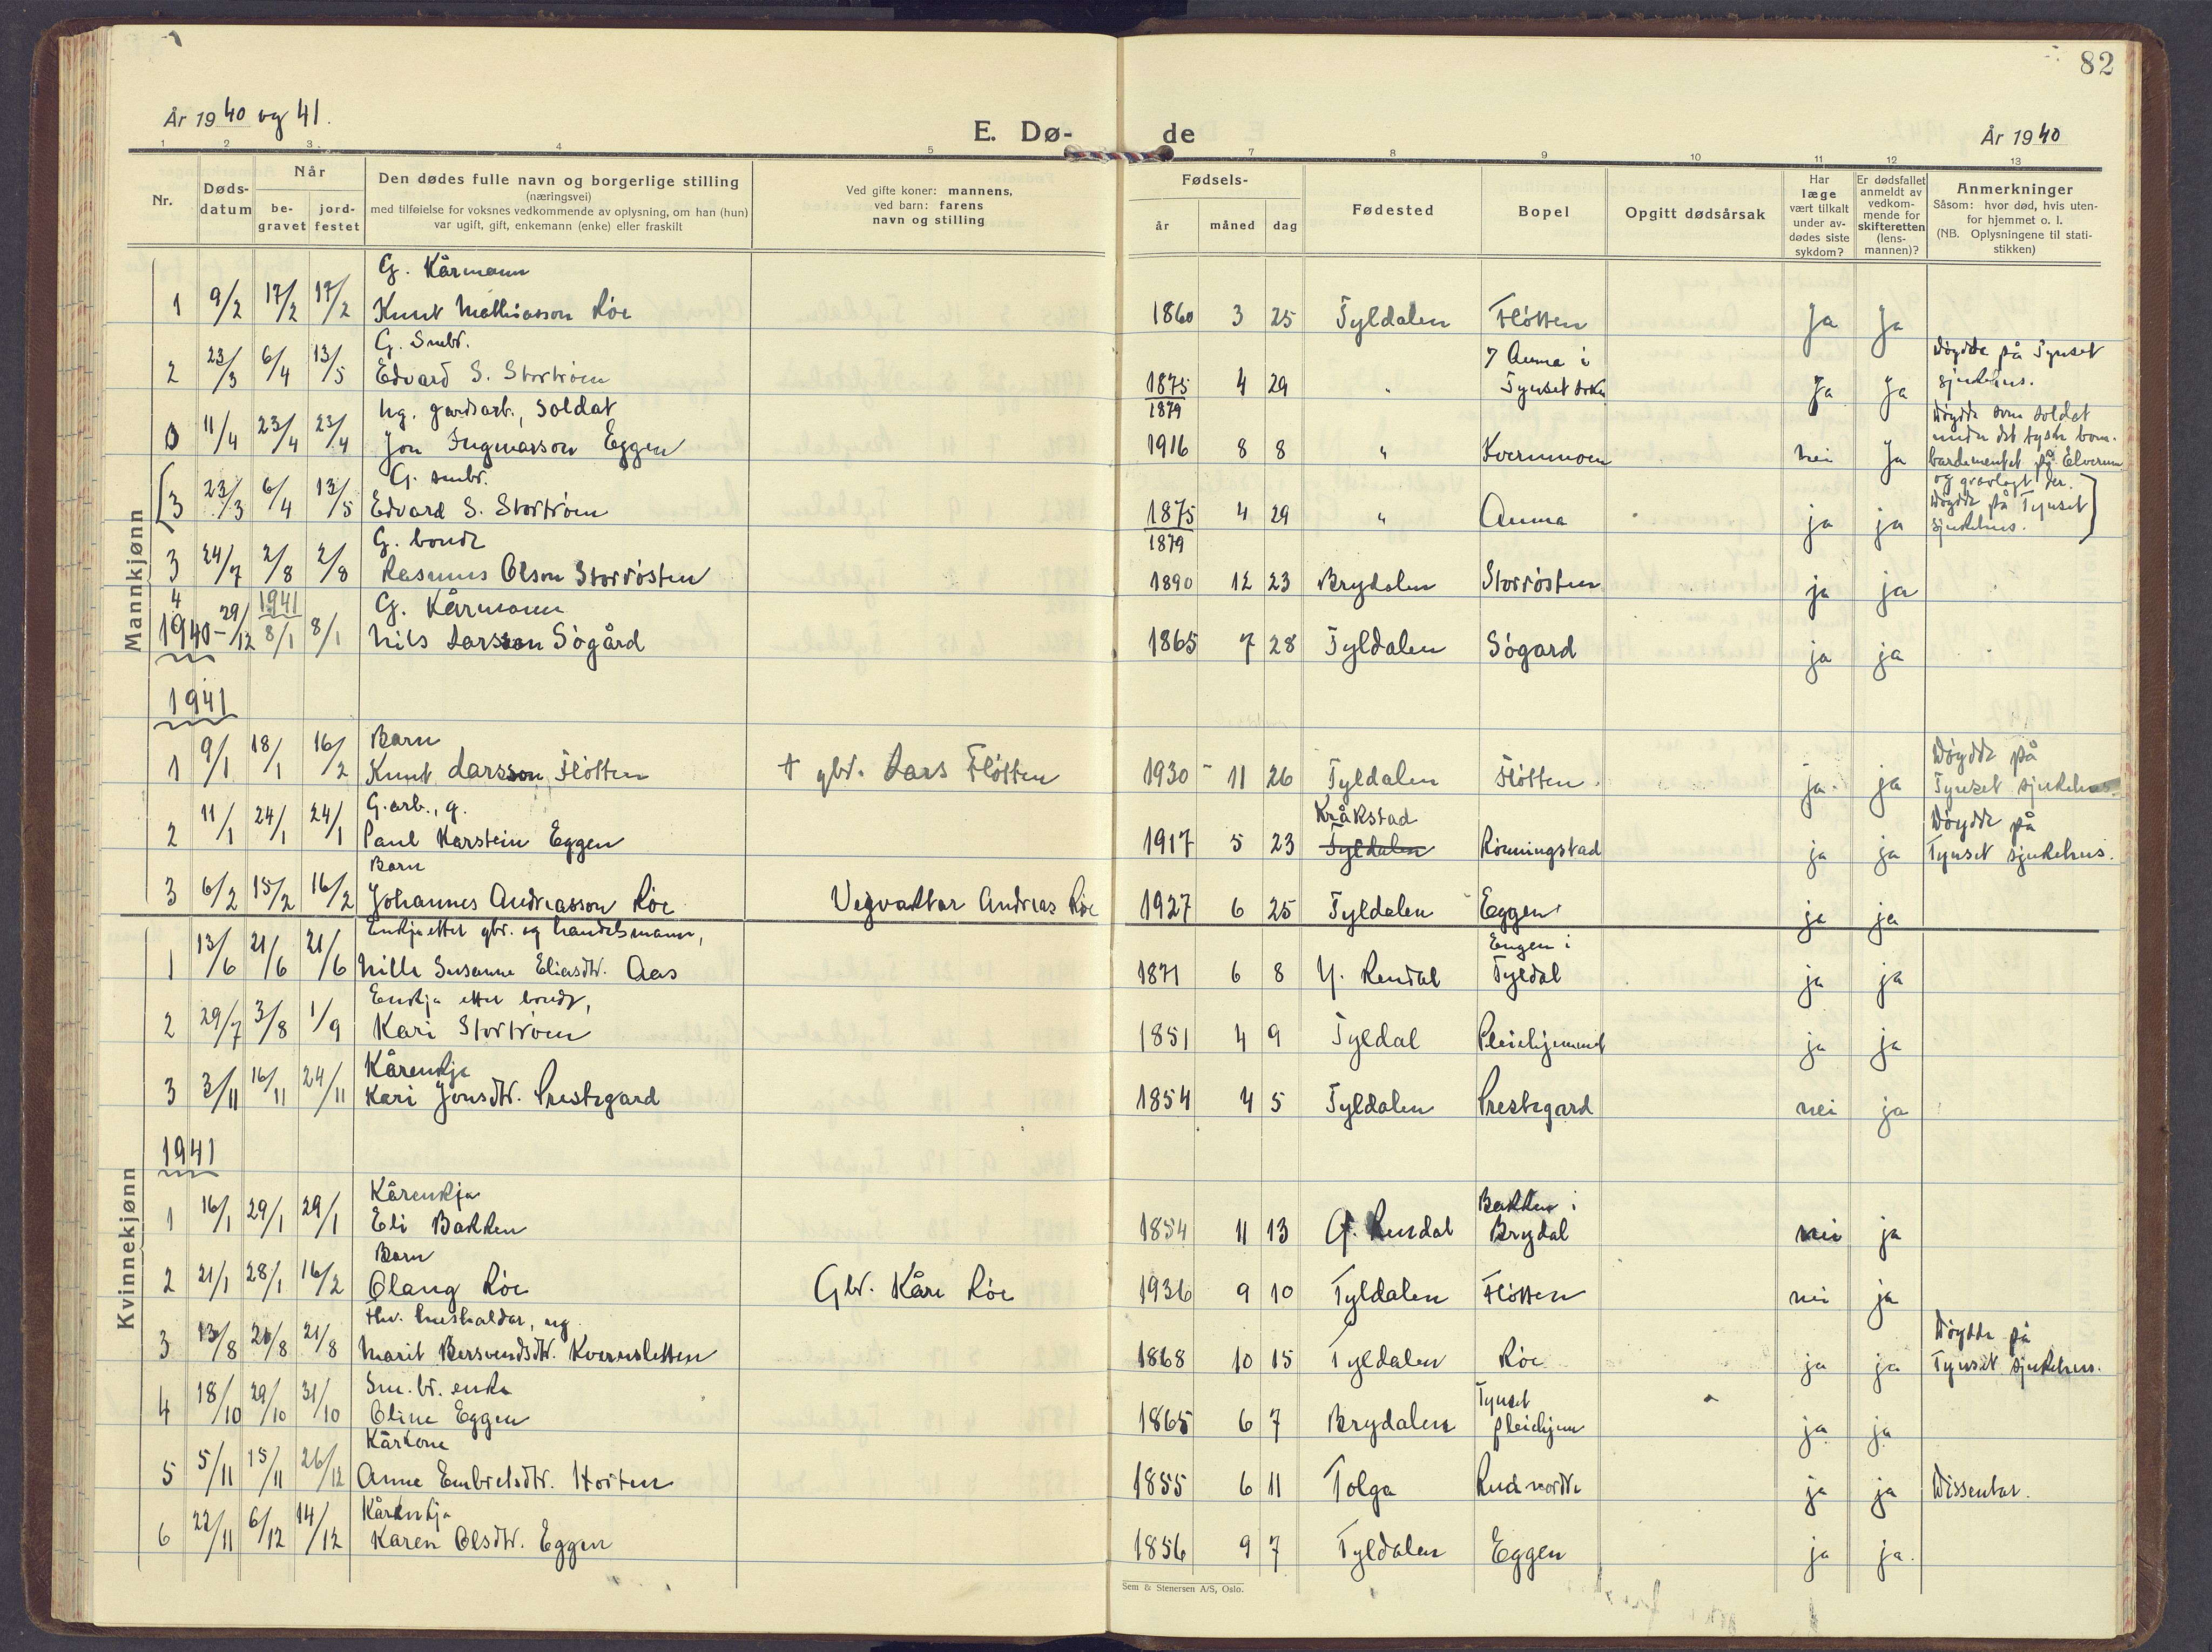 82
År 1940 og 41.
E. Dø- de
År 1940
1 2 3 4 5 7 8 9 10 11 12 13
Nr.
Døds-datum
Når
be-gravet
jord-festet
Den dødes fulle navn og borgerlige stilling
(næringsvei)
med tilføielse for voksnes vedkommende av oplysning, om han (hun)
var ugift, gift, enkemann (enke) eller fraskilt
Ved gifte koner: mannens,
ved barn: farens
navn og stilling
Fødsels-
år måned dag
Fødested
Bopel
Opgitt dødsårsak
Har læge vært tilkalt under av-dødes siste sykdom?
Er dødsfallet anmeldt av vedkom-mende for skifteretten (lens-mannen)?
Anmerkninger
Såsom: hvor død, hvis uten-
for hjemmet o. l.
(NB. Oplysningene til stati-
stikken)
Mannkjønn
G. Kårmann
1 9/2 17/2 17/2 Knut Mathiasson Røe 1860 3 25 Tyldalen Fløtten Ja Ja
G. Smbr. Auma i Døydde på Tynset
2 23/3 6/4 13/5 Edvard S. Stortrøen 1875 4 29 " Tynset Ja Ja sjukehus.
1879
ug. gardsarb., soldat Døydde som soldat
3 11/4 23/4 23/4 Jon Ingmarsson Eggen 1916 8 8 " Kvernmoen nei Ja under det tyske bom-
bardementet på Elverum
og gravlagt der.
G. smbr. Døydde på Tynset
3 23/3 6/4 13/5 Edvard S. Stortrøen 1875 4 29 " Auma ja ja sjukehus.
1879
G. bonde
3 24/7 2/8 2/8 Rasmus Olson Storrøsten 1890 12 23 Brydalen Storrøsten ja ja
4 1941 G. Kårmann
1940 - 29/12 8/1 8/1 Nils Larsson Søgård 1865 7 28 Tyldalen Søgard ja ja
1941
Barn Døydde på
1 9/1 18/1 16/2 Knut Larsson Fløtten † gbr. Lars Fløtten 1930 11 26 Tyldalen Fløtten. ja ja Tynset sjukehus.
G.arb., g. Kråkstad Døydde på
2 11/1 24/1 24/1 Paul Karstein Eggen 1917 5 23 Tyldalen Rønningstad ja ja Tynset sjukehus.
Barn
3 6/2 15/2 16/2 Johannes Andreasson Røe Vegvaktar Andreas Røe 1927 6 25 Tyldalen Eggen ja ja
Kvinnekjønn
Enkje etter gbr. og handelsmann, Engen i
1 13/6 21/6 21/6 Nille Susanne Eliasdtr. Aas 1871 6 8 Y. Rendal Tyldal ja ja
Enkja etter bonde,
2 29/7 3/8 1/9 Kari Stortrøen 1851 4 9 Tyldal Pleiehjemmet ja ja
Kårenkja
3 3/11 16/11 24/11 Kari Jonsdtr. Prestegard 1854 4 5 Tyldalen Prestegard nei ja
1941
Kårenkja Bakken i
1 16/1 29/1 29/1 Eli Bakken 1854 11 13 Rendal Brydal nei ja
Barn
2 21/1 28/1 16/2 Olaug Røe Gbr. Kåre Røe 1936 9 10 Tyldalen Fløtten nei ja
Fhv. hushaldar, ug. Døydde på
3 13/8 21/8 21/8 Marit Bersvendsdtr. Kvernsletten 1868 10 15 Tyldalen Røe ja ja Tynset sjukehus.
Sm.br. enke Tynset
4 18/10 29/10 31/10 Oline Eggen 1865 6 7 Brydalen pleiehjem ja ja
Kårkone
5 5/11 15/11 26/12 Anne Embretsdtr. Horten 1855 6 11 Tolga Rud nordre ja ja Dissentar.
Kårenkja
6 22/11 6/12 14/12 Karen Olsdtr. Eggen 1856 9 7 Tyldalen Eggen ja ja.
Sem & Stenersen A/S, Oslo.